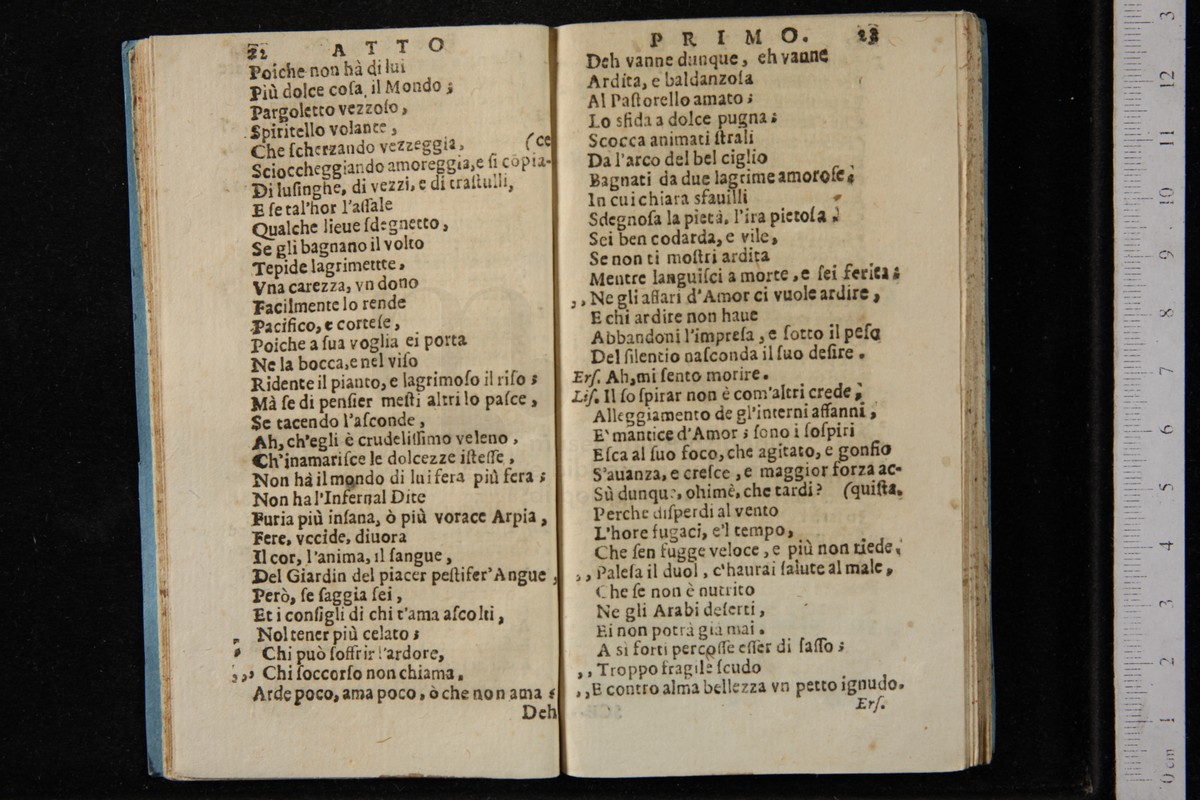 22 ATTO
Poiche non hà di lui
Più dolce coſa, il Mondo;
Pargoletto vezzoſo,
Spiritello volante,
Che ſcherzando vezzeggia, (ce
Scioccheggiando amoreggia,e ſi cõpia-
Di luſinghe, di vezzi, e di traſtulli,
E ſe tal'hor l'aſſale
Qualche lieue ſdegnetto,
Se gli bagnano il volto
Tepide lagrimettte,
Vna carezza, vn dono
Facilmente lo rende
Pacifico, e corteſe,
Poiche a ſua voglia ei porta
Ne la bocca,e nel viſo
Ridente il pianto, e lagrimoſo il riſo;
Mà ſe di penſier meſti altri lo paſce,
Se tacendo l'aſconde,
Ah, ch'egli è crudeliſſimo veleno,
Ch'inamariſce le dolcezze iſteſſe,
Non hà il mondo di lui fera più fera;
Non ha l'Infernal Dite
Furia più inſana, ò più vorace Arpia,
Fere, vccide, diuora
Il cor, l'anima, il ſangue,
Del Giardin del piacer peſtifer'Angue,
Però, ſe ſaggia ſei,
Et i conſigli di chi t'ama aſcolti,
Nol tener più celato;
Chi può ſoffrir l'ardore,
,,, Chi ſoccorſo non chiama.
Arde poco, ama poco, ò che non ama:
Deh
PRIMO. 23
Deh vanne dunque, eh vanne
Ardita, e baldanzoſa
Al Paſtorello amato;
Lo sfida a dolce pugna;
Scocca animati ſtrali
Da l'arco del bel ciglio
Bagnati da due lagrime amoroſe;
In cui chiara sfauilli
Sdegnoſa la pietà, l'ira pietoſa;
Sei ben codarda, e vile,
Se non ti moſtri ardita
Mentre languiſci a morte,e ſei ferita;
,, Ne gli affari d'Amor ci vuole ardire,
E chi ardire non haue
Abbandoni l'impreſa, e ſotto il peſo
Del ſilentio naſconda il ſuo deſire.
Erſ. Ah,mi ſento morire.
Liſ. Il ſoſpirar non è com'altri crede,
Alleggiamento de gl'interni affanni,
E' mantice d'Amor; ſono i ſoſpiri
Eſca al ſuo foco, che agitato, e gonfio
S'auanza, e creſce, e maggior forza ac-
Sù dunque, ohimè, che tardi? (quiſta.
Perche diſperdi al vento
L'hore fugaci, e'l tempo,
Che ſen fugge veloce, e più non riede,
,, Paleſa il duol, c'haurai ſalute al male,
Che ſe non è nutrito
Ne gli Arabi deſerti,
Ei non potrà già mai.
A sì forti percoſſe eſſer di ſaſſo;
,, Troppo fragile ſcudo
,, E contro alma bellezza vn petto ignudo.
Erſ.